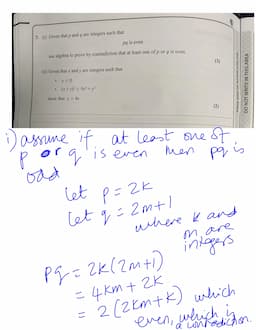 (i) Given that p and q are integers such that
pq is even
use algebra to prove by contradiction that at least one of p or q is even.
(3)
(ii) Given that x and y are integers such that
• x < 0
• (x + y)² < 9x² + y²
show that y > 4x
(2)
DO NOT WRITE IN THIS AREA
i) assume if at least one of
p or q is even then pq is
odd
let p = 2k
let q = 2m+1
where k and
m are
integers
pq = 2k(2m+1)
= 4km + 2k
= 2(2km+k) which
even, which is
a contradiction.